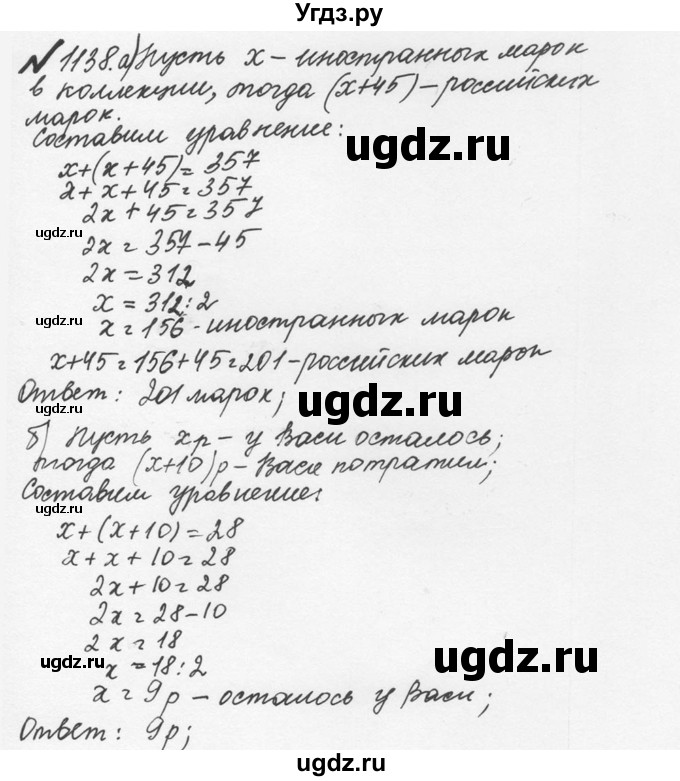 Угдз.ру
№1138.а) Пусть х – иностранных марок
в коллекции, тогда (х+45) – российских
марок.
Составим уравнение:
ugdz.ru
х+(х+45)=357
х+х+45=357
2х+45=357
ugdz.ru
2х=357-45
2х=312
х=312:2
ugdz.ru
х=156 - иностранных марок
х+45=156+45=201-российских марок
Ответ: 201 марок;
ugdz.ru
б) Пусть хр – у Васи осталось;
тогда (х+10)р – Вася потратил;
Составим уравнение:
ugdz.ru
х+(х+10)=28
х+х+10=28
2х+10=28
2х=28-10
2х=18
ugdz.ru
ugdz.ru
х=18:2
х=9р – осталось у Васи;
Ответ: 9р;
ugdz.ru
ugdz.ru